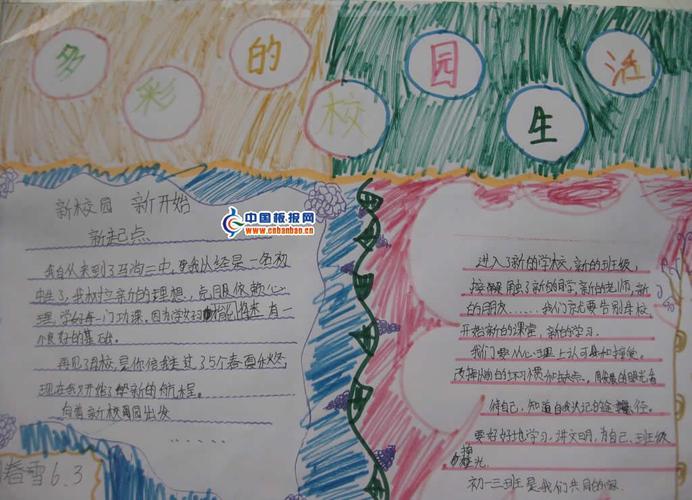 多彩的校园生活
新校园 新开始
新起点
中国板报网
www.cnbanbao.cn
我自从来到了互沟二中,更我从经是一名初
中生了,我树立新的理想,克服依赖心
理,学好每一门功课,因为学好 将来有一
个良好的基础。
再见了母校是你 走过了5个春夏秋冬,
现在我又开始了 新的航程。
向着新校园出发
......
春雪6.3
进入了新的学校,新的班级,
接触了新的同学,新的老师,新
的朋友……我们就要告别母校
开始新的课堂,新的学习。
我们要从心理上认可和接受。
改掉 的坏习惯 缺点,用 眼光看
待自己,知道自我认记的途径。
要好好地学习,讲文明,为自己、班级
争光。
初一三班是我们共同的家